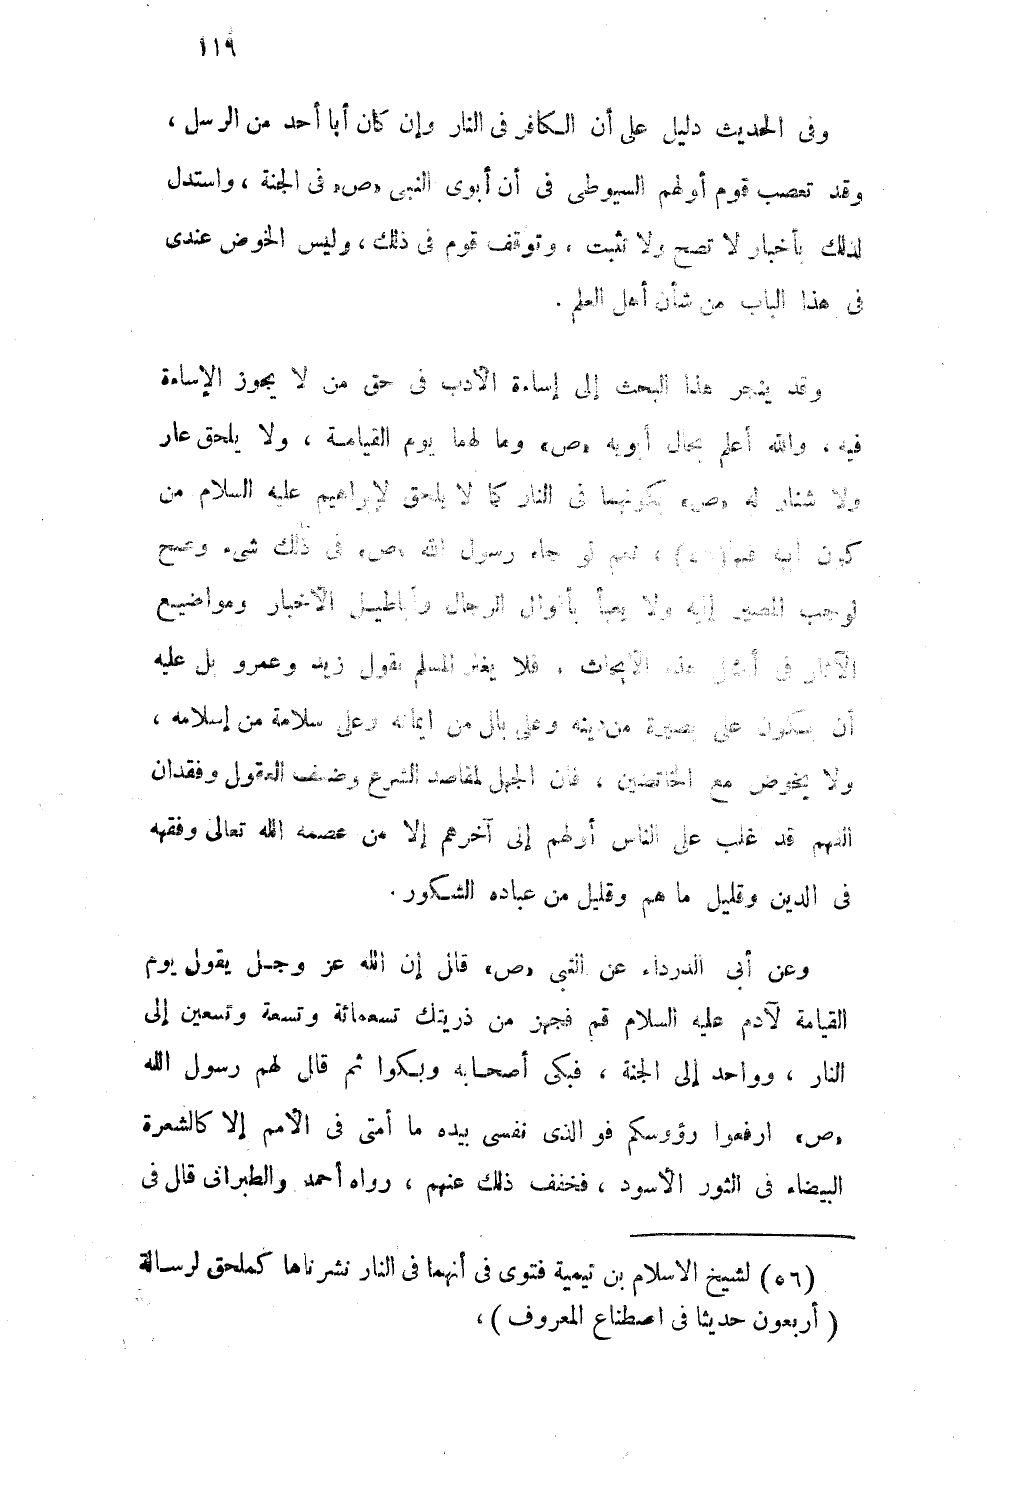 ١١٩
وفى الحديث دليل على أن الكافر فى النار وإن كان أبا أحد من الرسل ،
وقد تعصب قوم أولهم السيوطى فى أن أبوى النبى «ص» فى الجنة ، واستدل
لذلك بأخبار لا تصح ولا تثبت ، وتوقف قوم فى ذلك ، وليس الخوض عندى
فى هذا الباب من شأن أهل العلم .
وقد ينجر هذا البحث إلى إساءة الأدب فى حق من لا يجوز الإساءة
فيه ، والله أعلم بحال أبويه «ص» وما لهما يوم القيامة ، ولا يلحق عار
ولا شنار له «ص» بكونهما فى النار كما لا يلحق لإبراهيم عليه السلام من
كون أبيه فيها (٥٦) ، نعم لو جاء رسول الله «ص» فى ذلك شىء وصح
لوجب المصير إليه ولا يعبأ بأقوال الرجال وأباطيل الأخبار ومواضيع
الآثار فى أمثال هذه الأبحاث ، فلا يغتر المسلم بقول زيد وعمرو بل عليه
أن يكون على بصيرة من دينه وعلى بال من ايمانه وعلى سلامة من إسلامه ،
ولا يخوض مع الخائضين ، فان الجهل لمقاصد الشرع وضعف العقول وفقدان
الفهم قد غلب على الناس أولهم إلى آخرهم إلا من عصمه الله تعالى وفقهه
فى الدين وقليل ما هم وقليل من عباده الشكور .
وعن أبى الدرداء عن النبى «ص» قال إن الله عز وجل يقول يوم
القيامة لآدم عليه السلام قم فجهز من ذريتك تسعمائة وتسعة وتسعين إلى
النار ، وواحد إلى الجنة ، فبكى أصحابه وبكوا ثم قال لهم رسول الله
«ص» ارفعوا رؤوسكم فو الذى نفسى بيده ما أمتى فى الأمم إلا كالشعرة
البيضاء فى الثور الأسود ، فخفف ذلك عنهم ، رواه أحمد والطبرانى قال فى
(٥٦) لشيخ الاسلام بن تيمية فتوى فى أنهما فى النار نشرناها كملحق لرسالة
( أربعون حديثا فى اصطناع المعروف ) ،